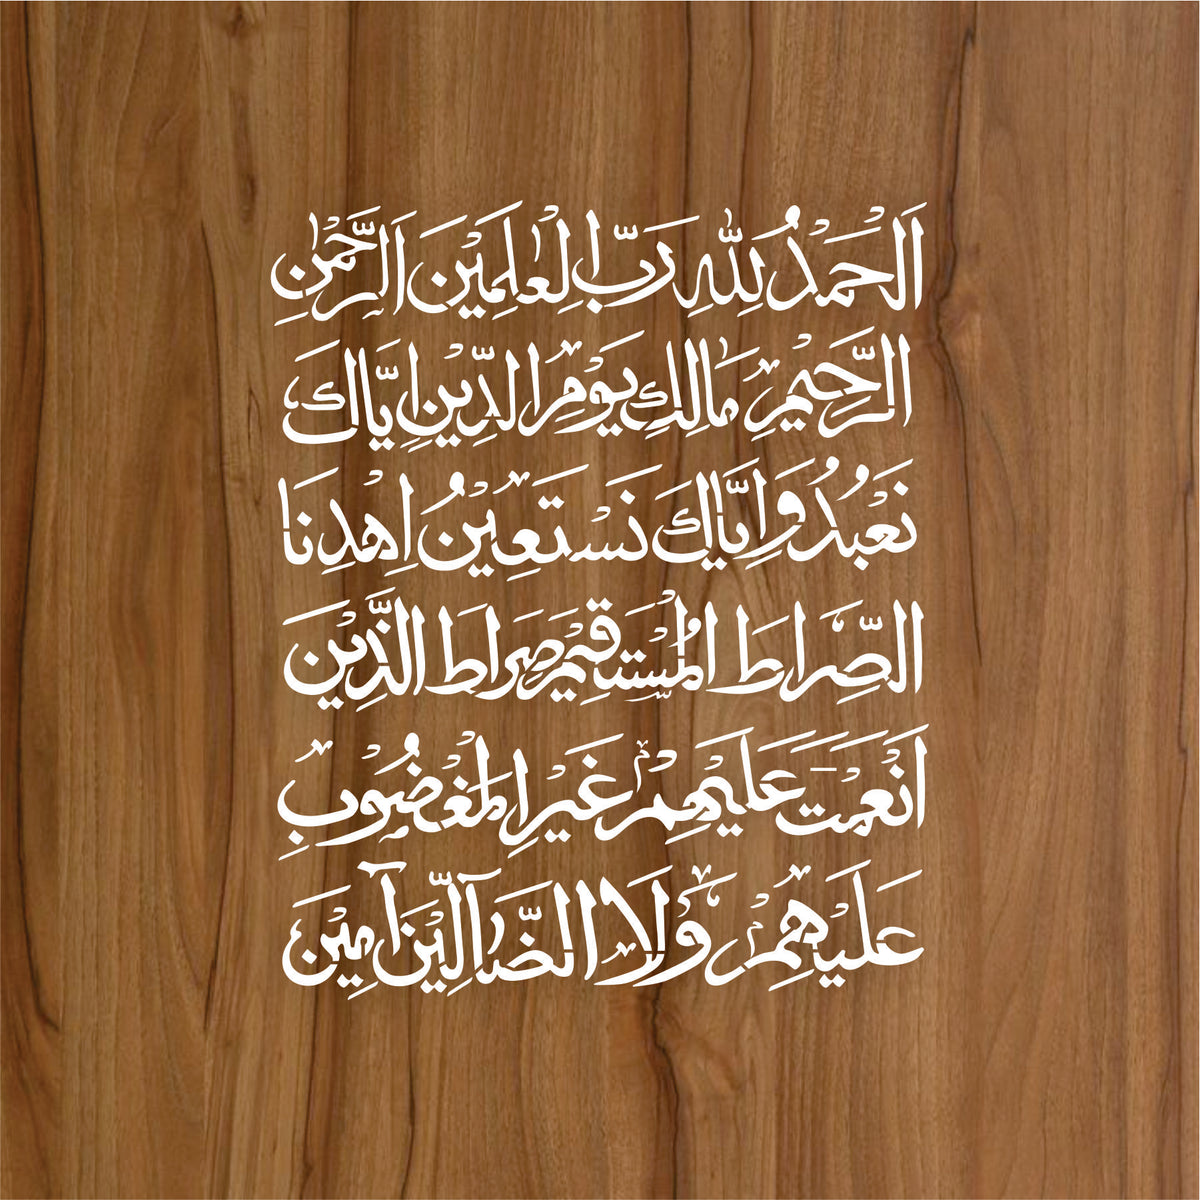 اَلْحَمْدُ لِلّٰهِ رَبِّ الْعٰلَمِيْنَ اَلرَّحْمٰنِ
الرَّحِيْمِ مَالِكِ يَوْمِ الدِّيْنِ اِيَّاكَ
نَعْبُدُ وَاِيَّاكَ نَسْتَعِيْنُ اِهْدِنَا
الصِّرَاطَ الْمُسْتَقِيْمَ صِرَاطَ الَّذِيْنَ
اَنْعَمْتَ عَلَيْهِمْ غَيْرِ الْمَغْضُوْبِ
عَلَيْهِمْ وَلَا الضَّآلِّيْنَ آمِيْنَ